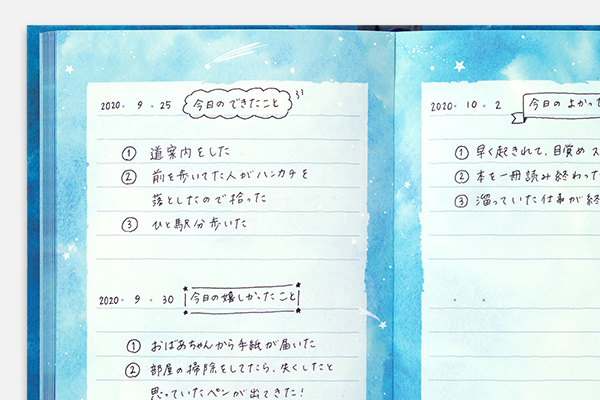 2020. 9. 25 今日のできたこと
① 道案内をした
② 前を歩いてた人がハンカチを
落としたので拾った
③ ひと駅分歩いた
2020. 9. 30 今日の嬉しかったこと
① おばあちゃんから手紙が届いた
② 部屋の掃除をしてたら、失くしたと
思っていたペンが出てきた!
2020. 10. 2 今日のよかった
① 早く起きれて、目覚め
② 本を一冊読み終わった
③ 溜っていた仕事が終